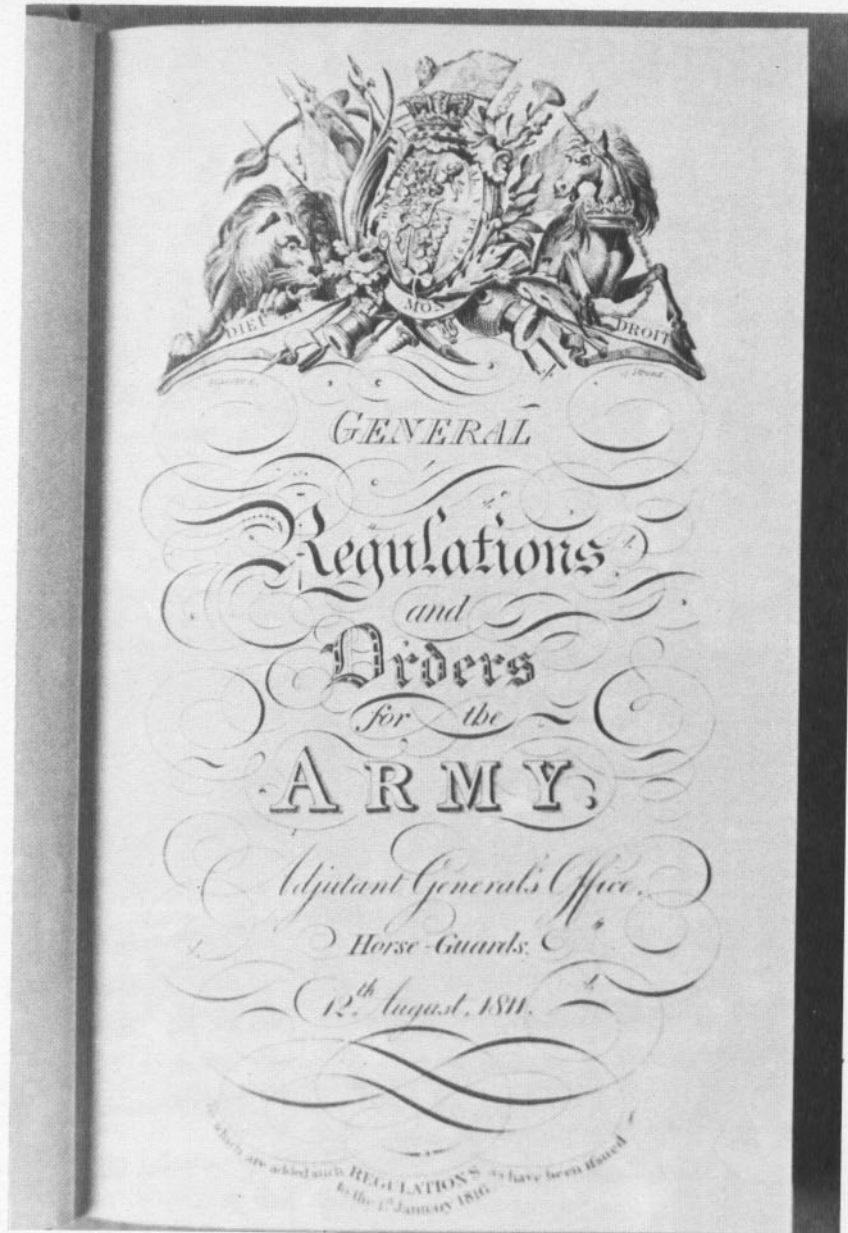 DIEU
MON
DROIT
GENERAL
Regulations
and
Orders
for the
ARMY;
Adjutant General's Office,
Horse-Guards,
12.th August, 1811.
To which are added such REGULATIONS as have been issued
to the 1.st January 1816